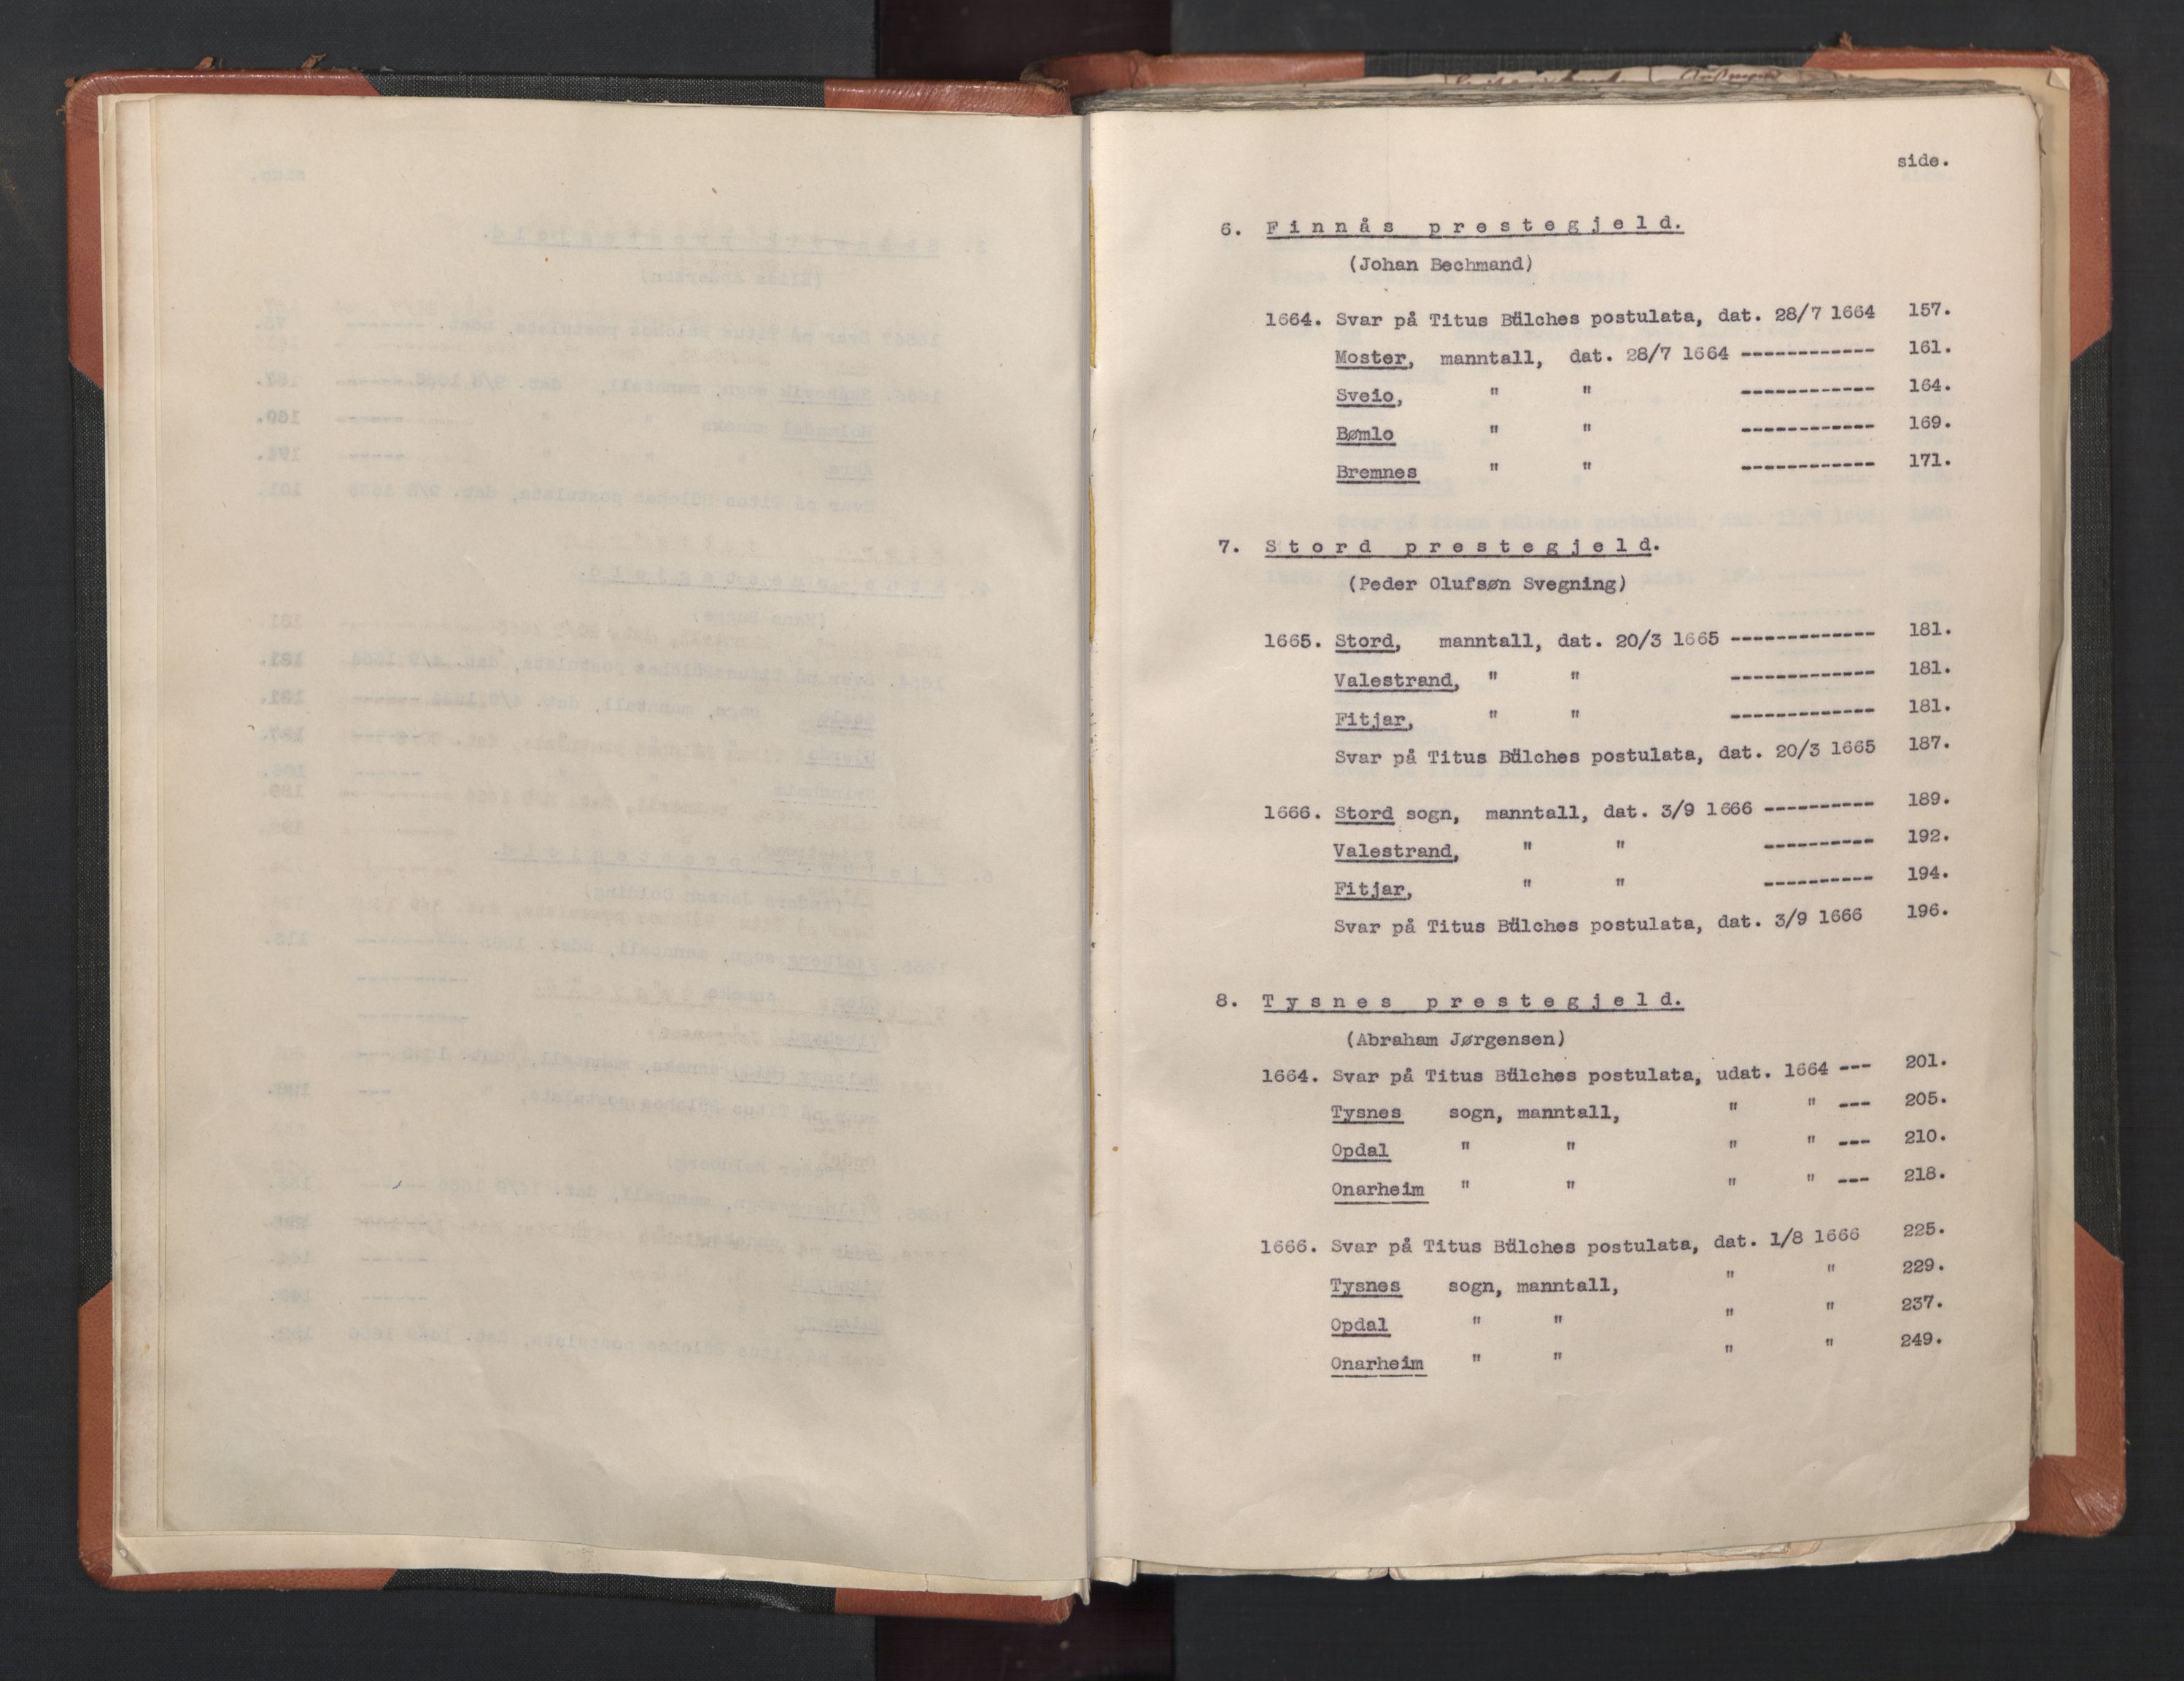 side.
6. Finnås prestegjeld.
(Johan Bechmand)
1664. Svar på Titus Bülches postulata, dat. 28/7 1664 157.
Moster, manntall, dat. 28/7 1664 ------------ 161.
Sveio, " " ------------ 164.
Bømlo " " ------------ 169.
Bremnes " " ------------ 171.
7. Stord prestegjeld.
(Peder Olufsøn Svegning)
1665. Stord, manntall, dat. 20/3 1665 ------------- 181.
Valestrand, " " ------------- 181.
Fitjar, " " ------------- 181.
Svar på Titus Bülches postulata, dat. 20/3 1665 187.
1666. Stord sogn, manntall, dat. 3/9 1666 ---------- 189.
Valestrand, " " ---------- 192.
Fitjar, " " ---------- 194.
Svar på Titus Bülches postulata, dat. 3/9 1666 196.
8. Tysnes prestegjeld.
(Abraham Jørgensen)
1664. Svar på Titus Bülches postulata, udat. 1664 --- 201.
Tysnes sogn, manntall, " " --- 205.
Opdal " " " " --- 210.
Onarheim " " " " --- 218.
1666. Svar på Titus Bülches postulata, dat. 1/8 1666 225.
Tysnes sogn, manntall, " " 229.
Opdal " " " " 237.
Onarheim " " " " 249.